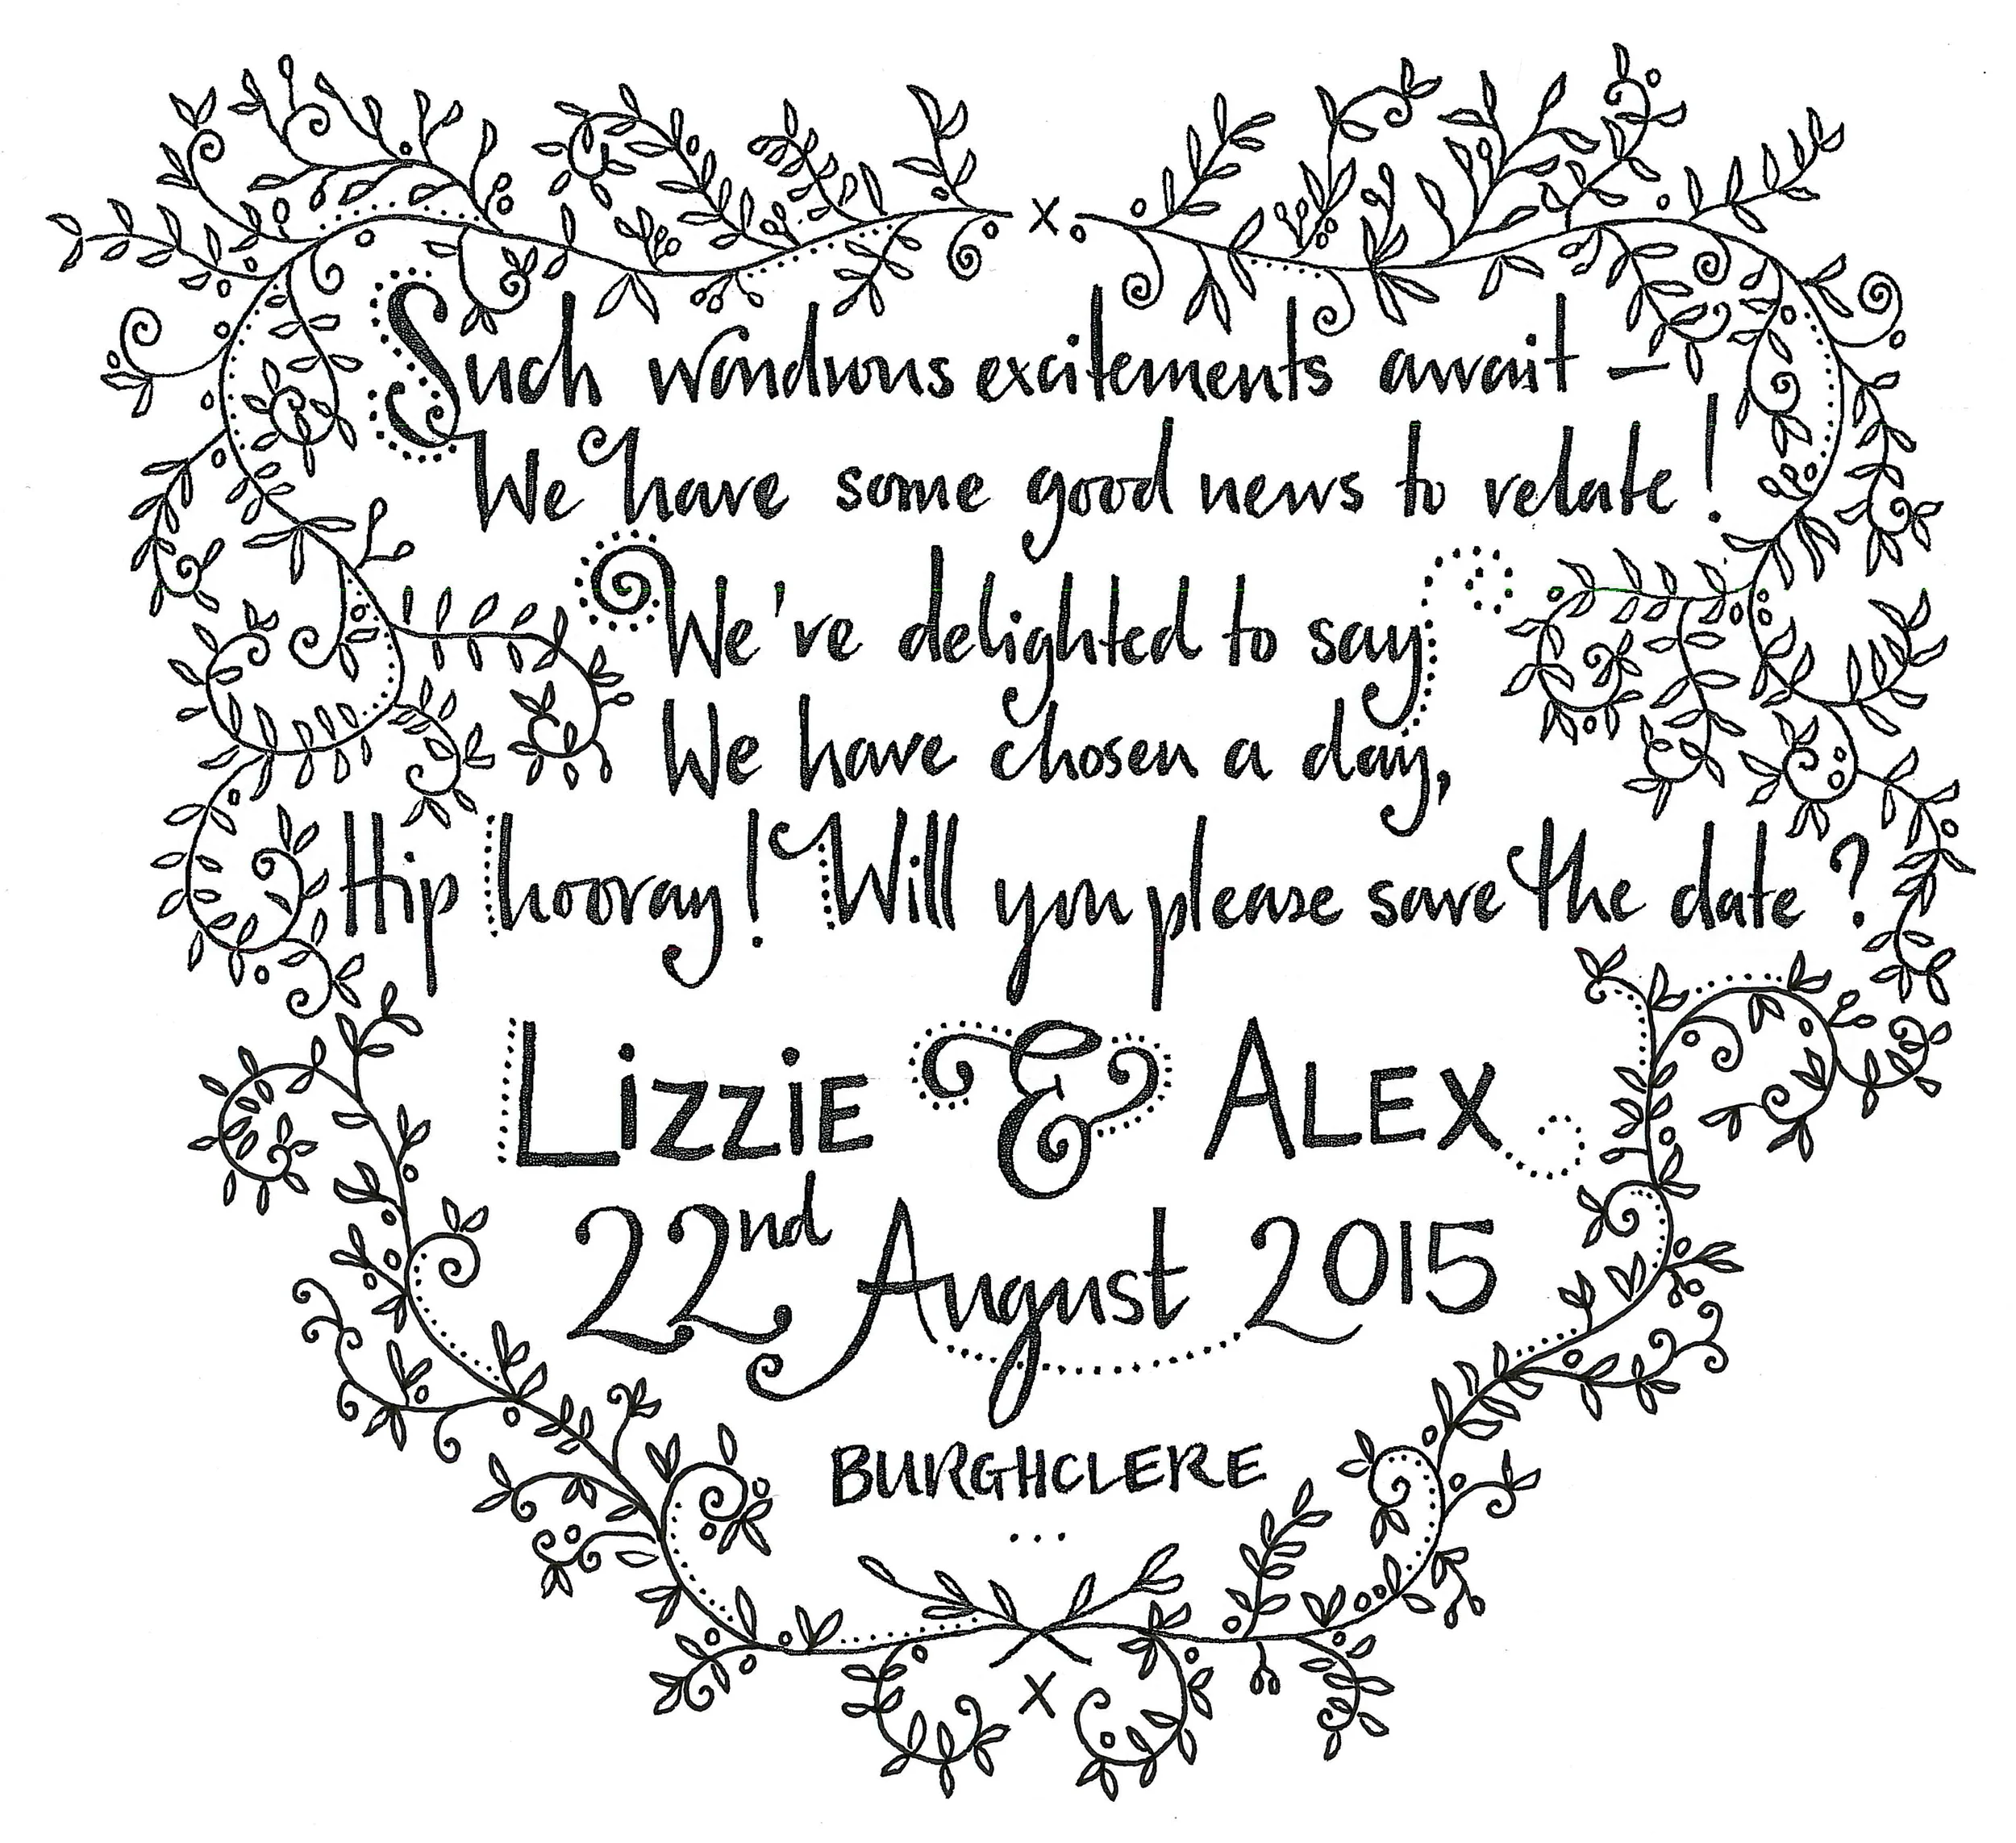 x
Such wondrous excitements await –
We have some good news to relate!
We've delighted to say
We have chosen a day,
Hip hooray! Will you please save the date?
LizziE & ALEX
22nd August 2015
BURGHCLERE
...
x